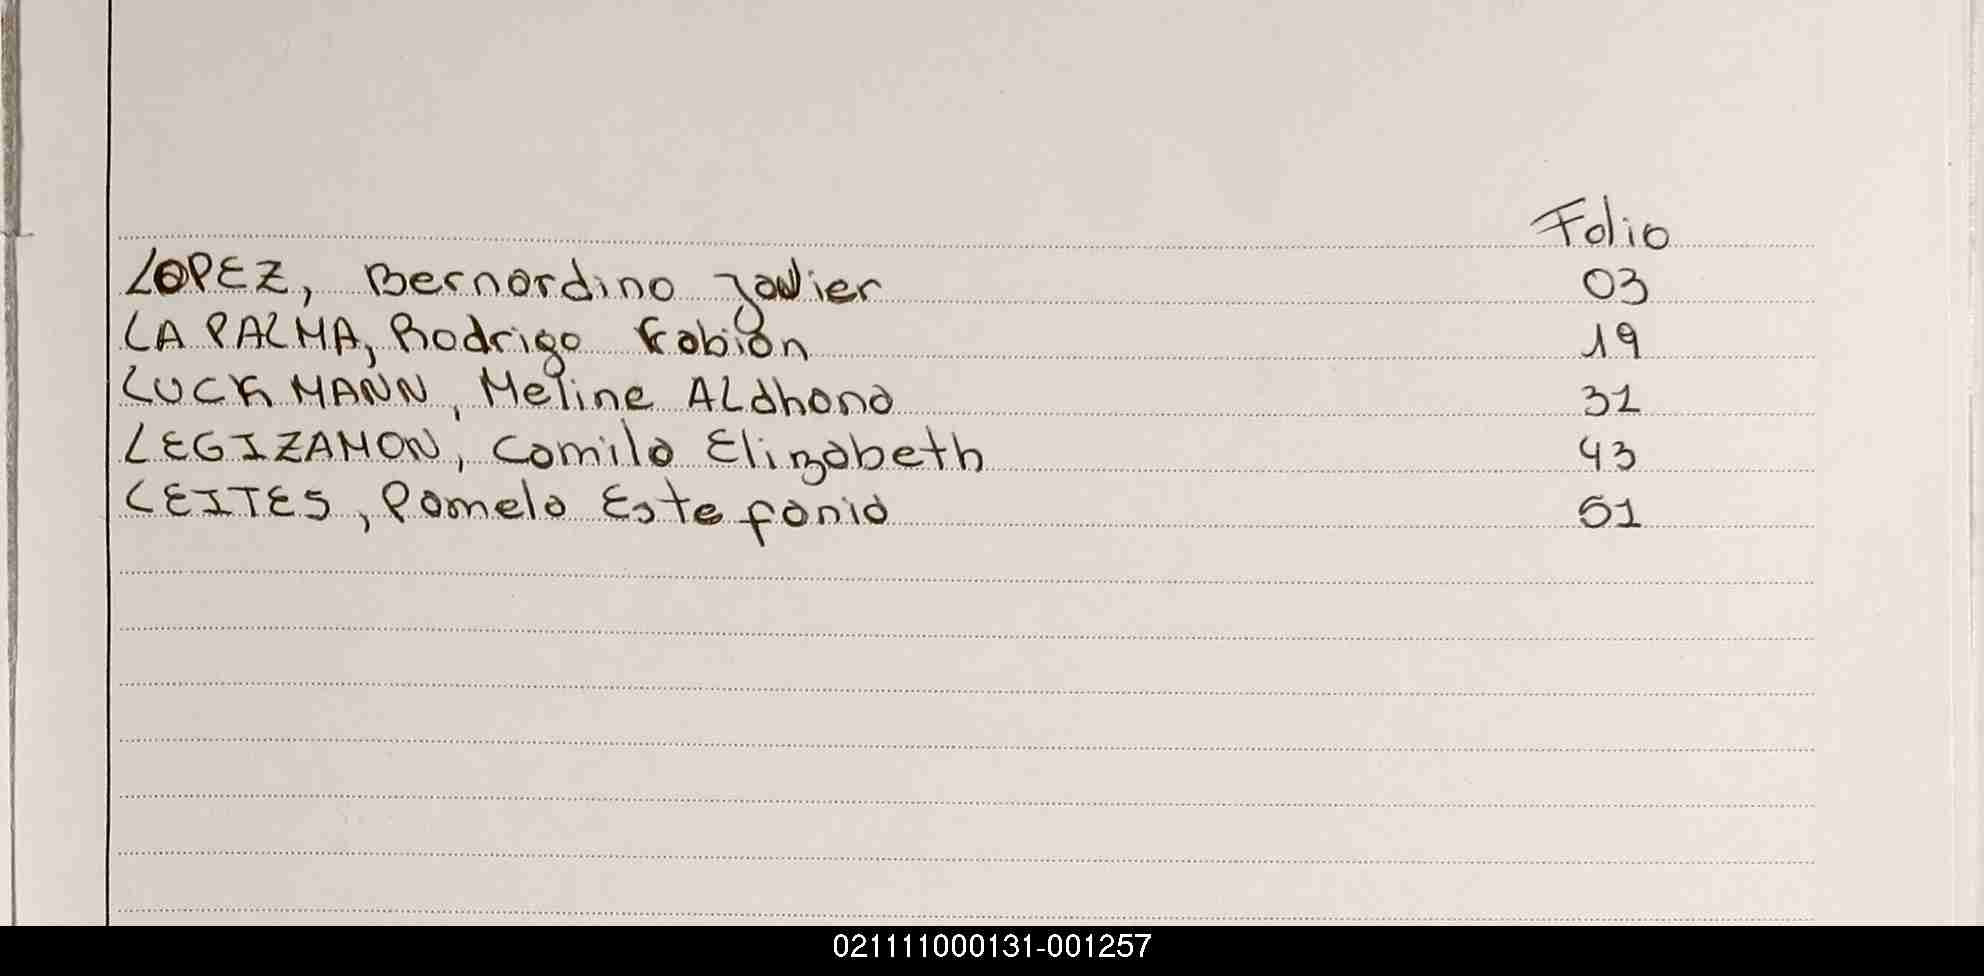 Folio
LOPEZ, Bernardino Javier 03
LA PALMA, Rodrigo Fabián 19
LUCKMANN, Meline Aldhana 31
LEGIZAMON, Camila Elizabeth 43
LEITES, Pamela Estefania 51
021111000131-001257